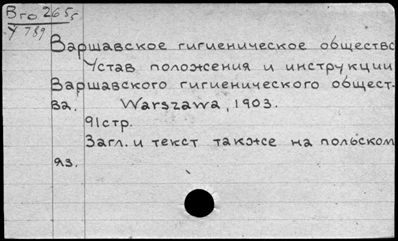 Вго 265⁵
У 789
Варшавское гигиеническое общество
Устав положения и инструкции
Варшавского гигиенического общест-
ва. Warszawa, 1903.
91стр.
Загл. и текст также на польском
яз.